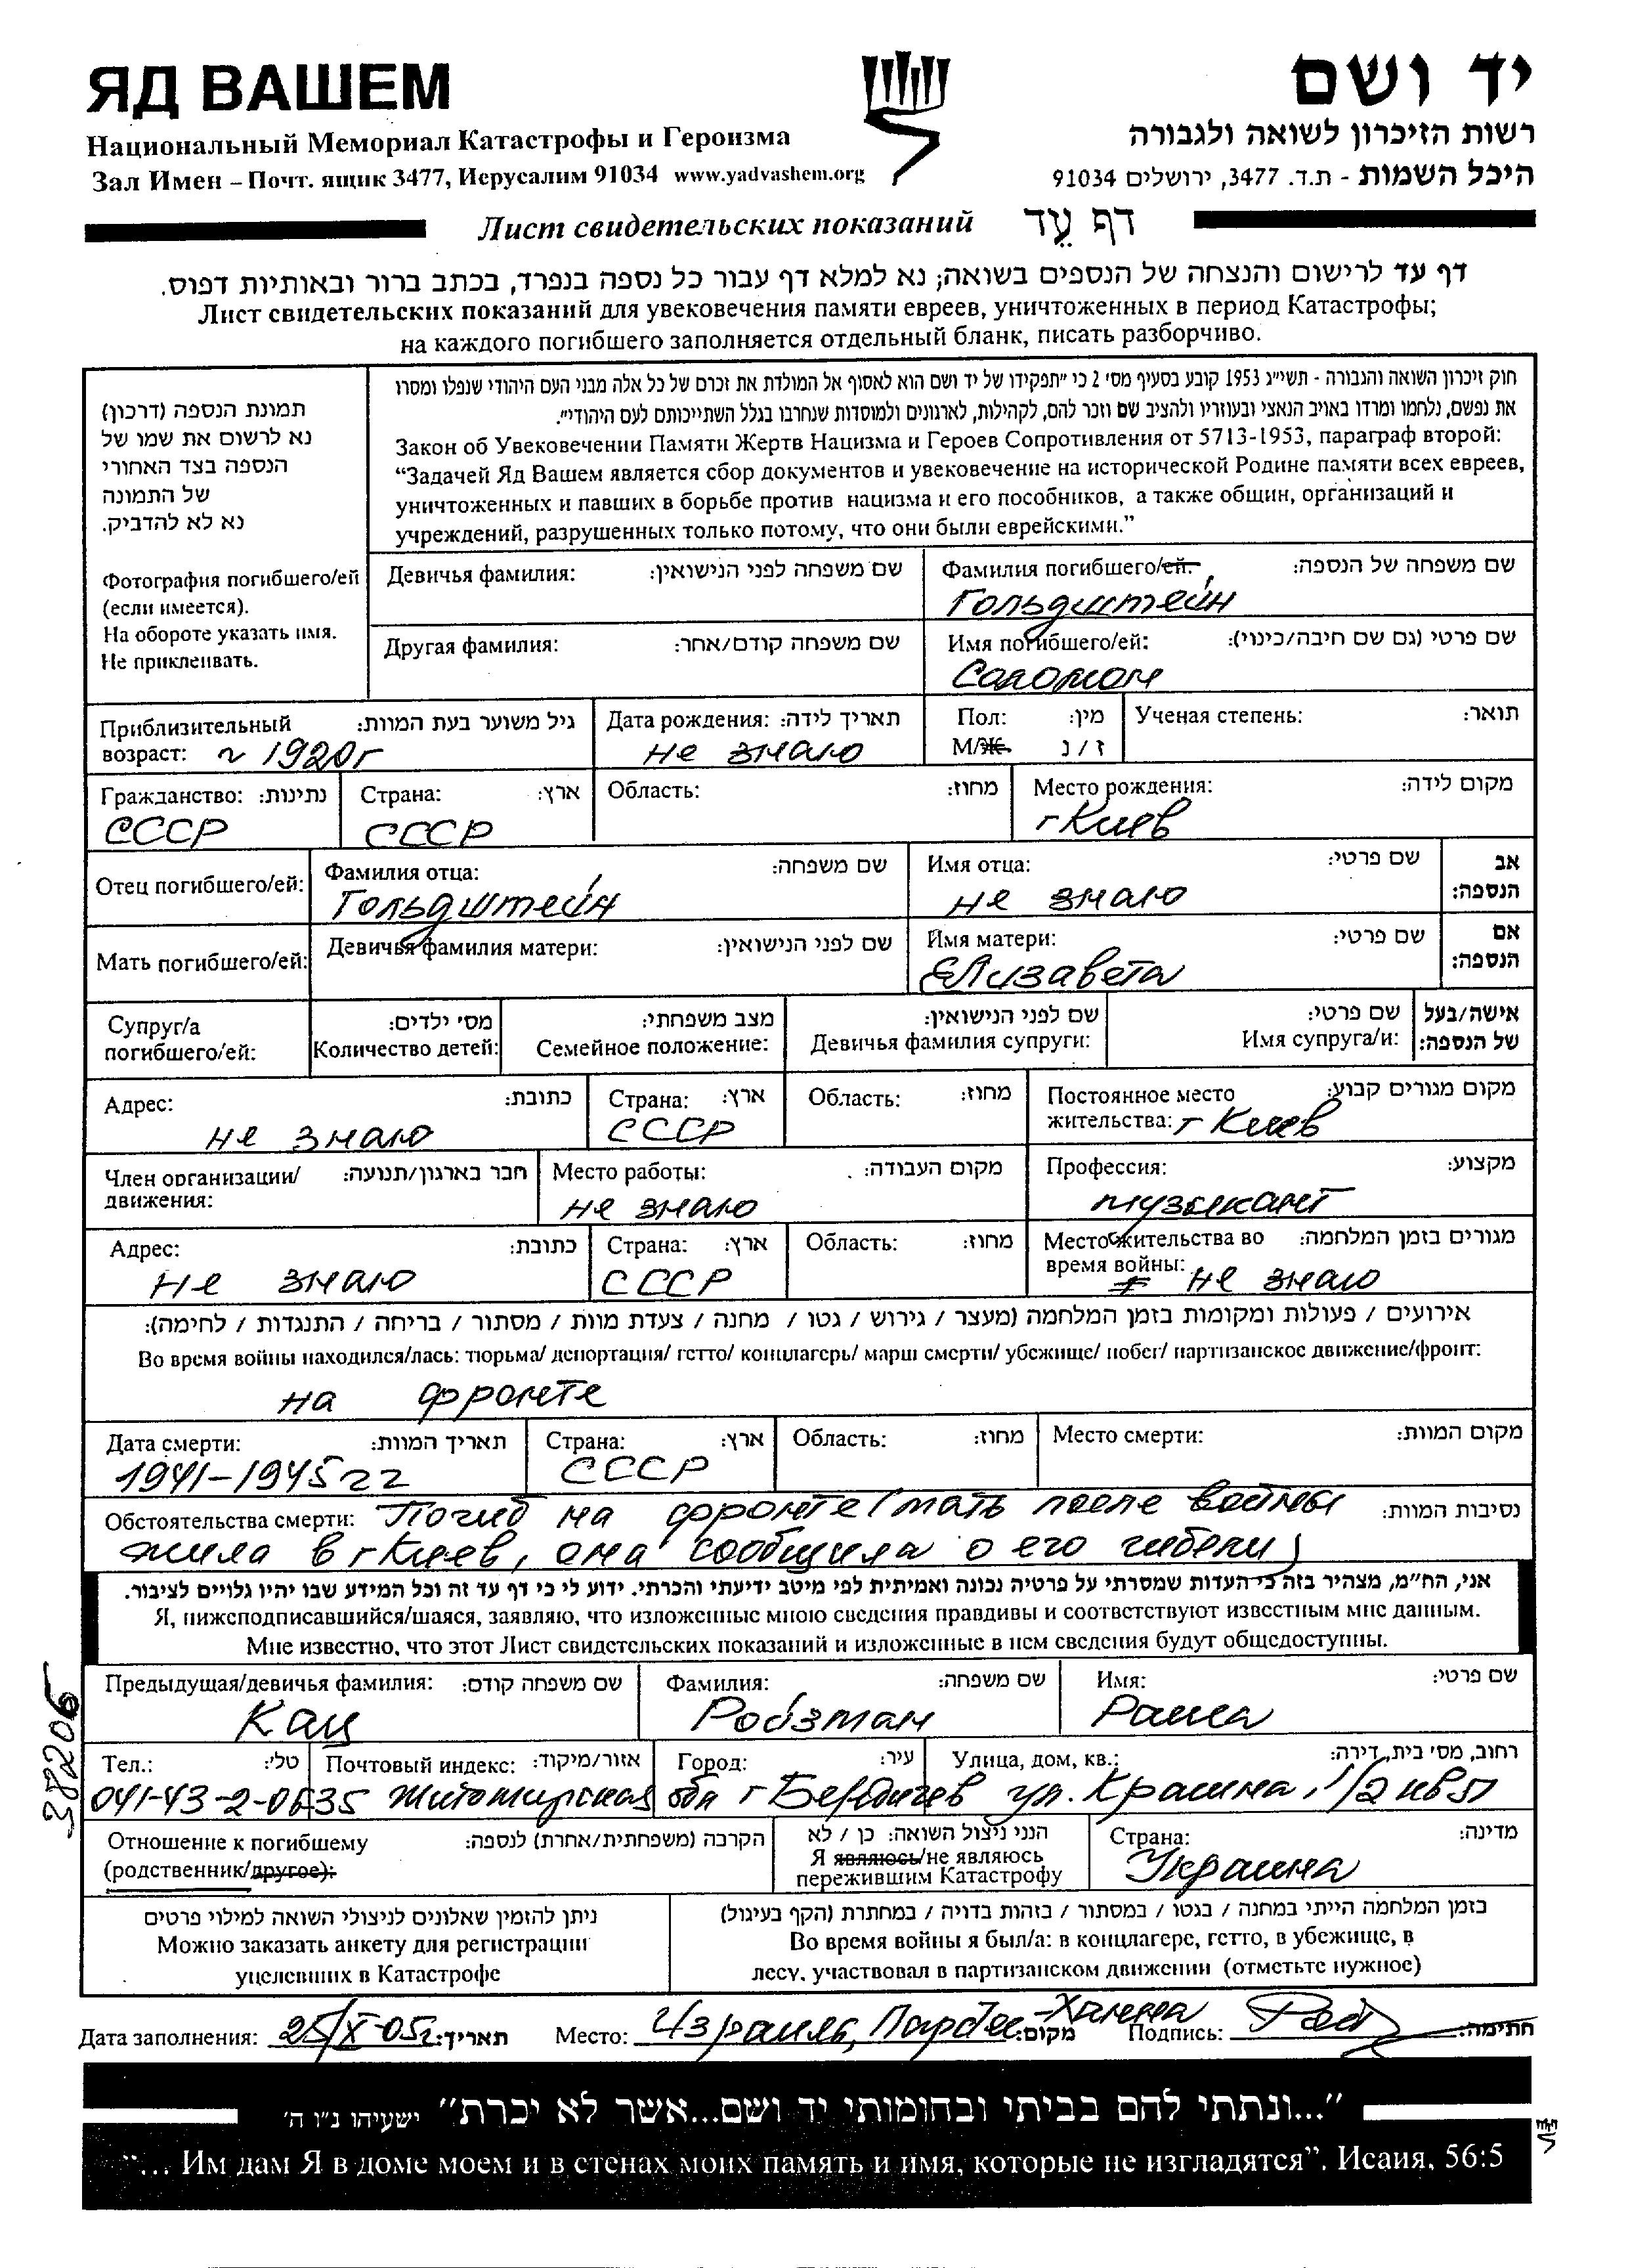 ЯД ВАШЕМ
יד ושם
Национальный Мемориал Катастрофы и Героизма
רשות הזיכרון לשואה ולגבורה
Зал Имен – Почт. ящик 3477, Иерусалим 91034 www.yadvashem.org
היכל השמות - ת.ד. 3477, ירושלים 91034
Лист свидетельских показаний דף עֵד
דף עד לרישום והנצחה של הנספים בשואה; נא למלא דף עבור כל נספה בנפרד, בכתב ברור ובאותיות דפוס.
Лист свидетельских показаний для увековечения памяти евреев, уничтоженных в период Катастрофы;
на каждого погибшего заполняется отдельный бланк, писать разборчиво.
תמונת הנספה (דרכון)
נא לרשום את שמו של
הנספה בצד האחורי
של התמונה
נא לא להדביק.
Фотография погибшего/ей
(если имеется).
На обороте указать имя.
Не приклеивать.
חוק זיכרון השואה והגבורה - תשי"ג 1953 קובע בסעיף מס' 2 כי "תפקידו של יד ושם הוא לאסוף אל המולדת את זכרם של כל אלה מבני העם היהודי שנפלו ומסרו
את נפשם, נלחמו ומרדו באויב הנאצי ובעוזריו ולהציב שם וזכר להם, לקהילות, לארגונים ולמוסדות שנחרבו בגלל השתייכותם לעם היהודי".
Закон об Увековечении Памяти Жертв Нацизма и Героев Сопротивления от 5713-1953, параграф второй:
“Задачей Яд Вашем является сбор документов и увековечение на исторической Родине памяти всех евреев,
уничтоженных и павших в борьбе против нацизма и его пособников, а также общин, организаций и
учреждений, разрушенных только потому, что они были еврейскими.”
Девичья фамилия: שם משפחה לפני הנישואין:
Фамилия погибшего/ей: שם משפחה של הנספה:
Гольдштейн
Другая фамилия: שם משפחה קודם/אחר:
Имя погибшего/ей: שם פרטי (גם שם חיבה/כינוי):
Соломон
Приблизительный возраст: גיל משוער בעת המוות:
~ 1920г
Дата рождения: תאריך לידה:
не знаю
Пол: מין:
М/Ж. ז / נ
Ученая степень: תואר:
Гражданство: נתינות:
СССР
Страна: ארץ:
СССР
Область: מחוז:
Место рождения: מקום לידה:
г Киев
Отец погибшего/ей:
Фамилия отца: שם משפחה:
Гольдштейн
Имя отца: שם פרטי:
не знаю
אב הנספה:
Мать погибшего/ей:
Девичья фамилия матери: שם לפני הנישואין:
Имя матери: שם פרטי:
Елизавета
אם הנספה:
Супруг/а погибшего/ей:
מס' ילדים: Количество детей:
מצב משפחתי: Семейное положение:
שם לפני הנישואין: Девичья фамилия супруги:
שם פרטי: Имя супруга/и:
אישה/בעל של הנספה:
Адрес: כתובת:
не знаю
Страна: ארץ:
СССР
Область: מחוז:
Постоянное место жительства: מקום מגורים קבוע:
г Киев
Член организации/движения: חבר בארגון/תנועה:
Место работы: מקום העבודה:
не знаю
Профессия: מקצוע:
музыкант
Адрес: כתובת:
не знаю
Страна: ארץ:
СССР
Область: מחוז:
Место жительства во время войны: מגורים בזמן המלחמה:
не знаю
אירועים / פעולות ומקומות בזמן המלחמה (מעצר / גירוש / גטו / מחנה / צעדת מוות / מסתור / בריחה / התנגדות / לחימה):
Во время войны находился/лась: тюрьма/ депортация/ гетто/ концлагерь/ марш смерти/ убежище/ побег/ партизанское движение/фронт:
на фронте
Дата смерти: תאריך המוות:
1941-1945 гг
Страна: ארץ:
СССР
Область: מחוז:
Место смерти: מקום המוות:
Обстоятельства смерти: Погиб на фронте (мать после войны נסיבות המוות:
жила в г Киев, она сообщила о его гибели)
אני, הח"מ, מצהיר בזה כי העדות שמסרתי על פרטיה נכונה ואמיתית לפי מיטב ידיעתי והכרתי. ידוע לי כי דף עד זה וכל המידע שבו יהיו גלויים לציבור.
Я, нижеподписавшийся/шаяся, заявляю, что изложенные мною сведения правдивы и соответствуют известным мне данным.
Мне известно, что этот Лист свидетельских показаний и изложенные в нем сведения будут общедоступны.
Предыдущая/девичья фамилия: שם משפחה קודם:
Кац
Фамилия: שם משפחה:
Ройзман
Имя: שם פרטי:
Раиса
Тел.: טלי:
041-43-2-0635
Почтовый индекс: אזור/מיקוד:
Город: עיר:
Улица, дом, кв.: רחוב, מס' בית, דירה:
Житомирская обл г Бердичев ул. Крашина, 1/2 кв 51
Отношение к погибшему (родственник/другое): הקרבה (משפחתית/אחרת) לנספה:
הנני ניצול השואה: כן / לא
Я являюсь/не являюсь
пережившим Катастрофу
Страна: מדינה:
Украина
ניתן להזמין שאלונים לניצולי השואה למילוי פרטים
Можно заказать анкету для регистрации
уцелевших в Катастрофе
בזמן המלחמה הייתי במחנה / בגטו / במסתור / בזהות בדויה / במחתרת (הקף בעיגול)
Во время войны я был/а: в концлагере, гетто, в убежище, в
лесу, участвовал в партизанском движении (отметьте нужное)
Дата заполнения: 25/X-05г. תאריך: Место: Израиль, Пардес-Ханна מקום: Подпись: חתימה:
38206
"...ונתתי להם בביתי ובחומותי יד ושם...אשר לא יכרת" ישעיהו נ"ו ה'
“... Им дам Я в доме моем и в стенах моих память и имя, которые не изгладятся”. Исаия, 56:5